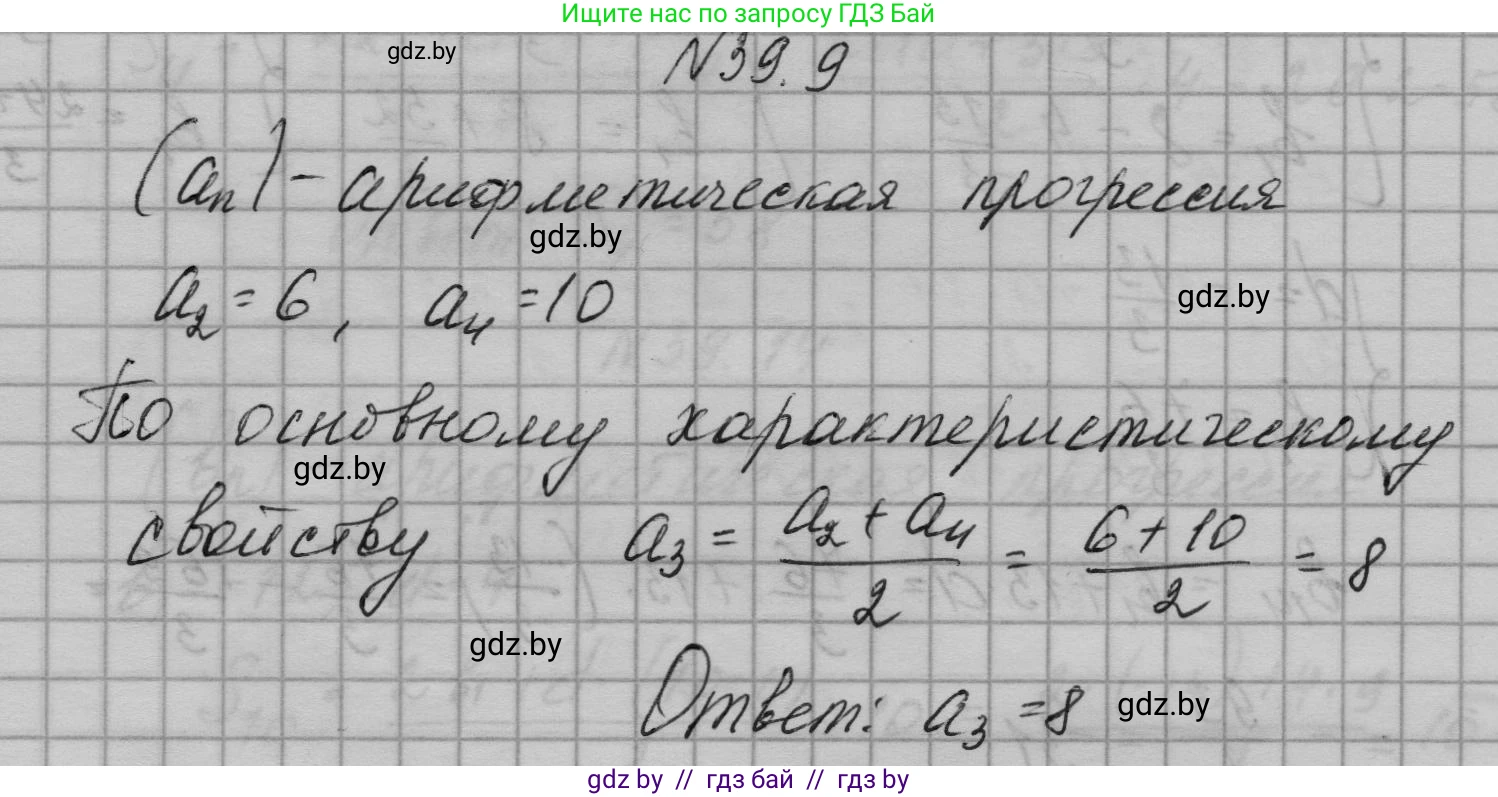 Ищите нас по запросу ГДЗ Бай
gdz.by
N39.9
(aₙ) - арифметическая прогрессия
gdz.by
a₂ = 6, a₄ = 10
gdz.by
По основному характеристическому
gdz.by
свойству a₃ = (a₂ + a₄)/2 = (6 + 10)/2 = 8
gdz.by
Ответ: a₃ = 8
gdz.by
gdz by // гдз бай // гдз by